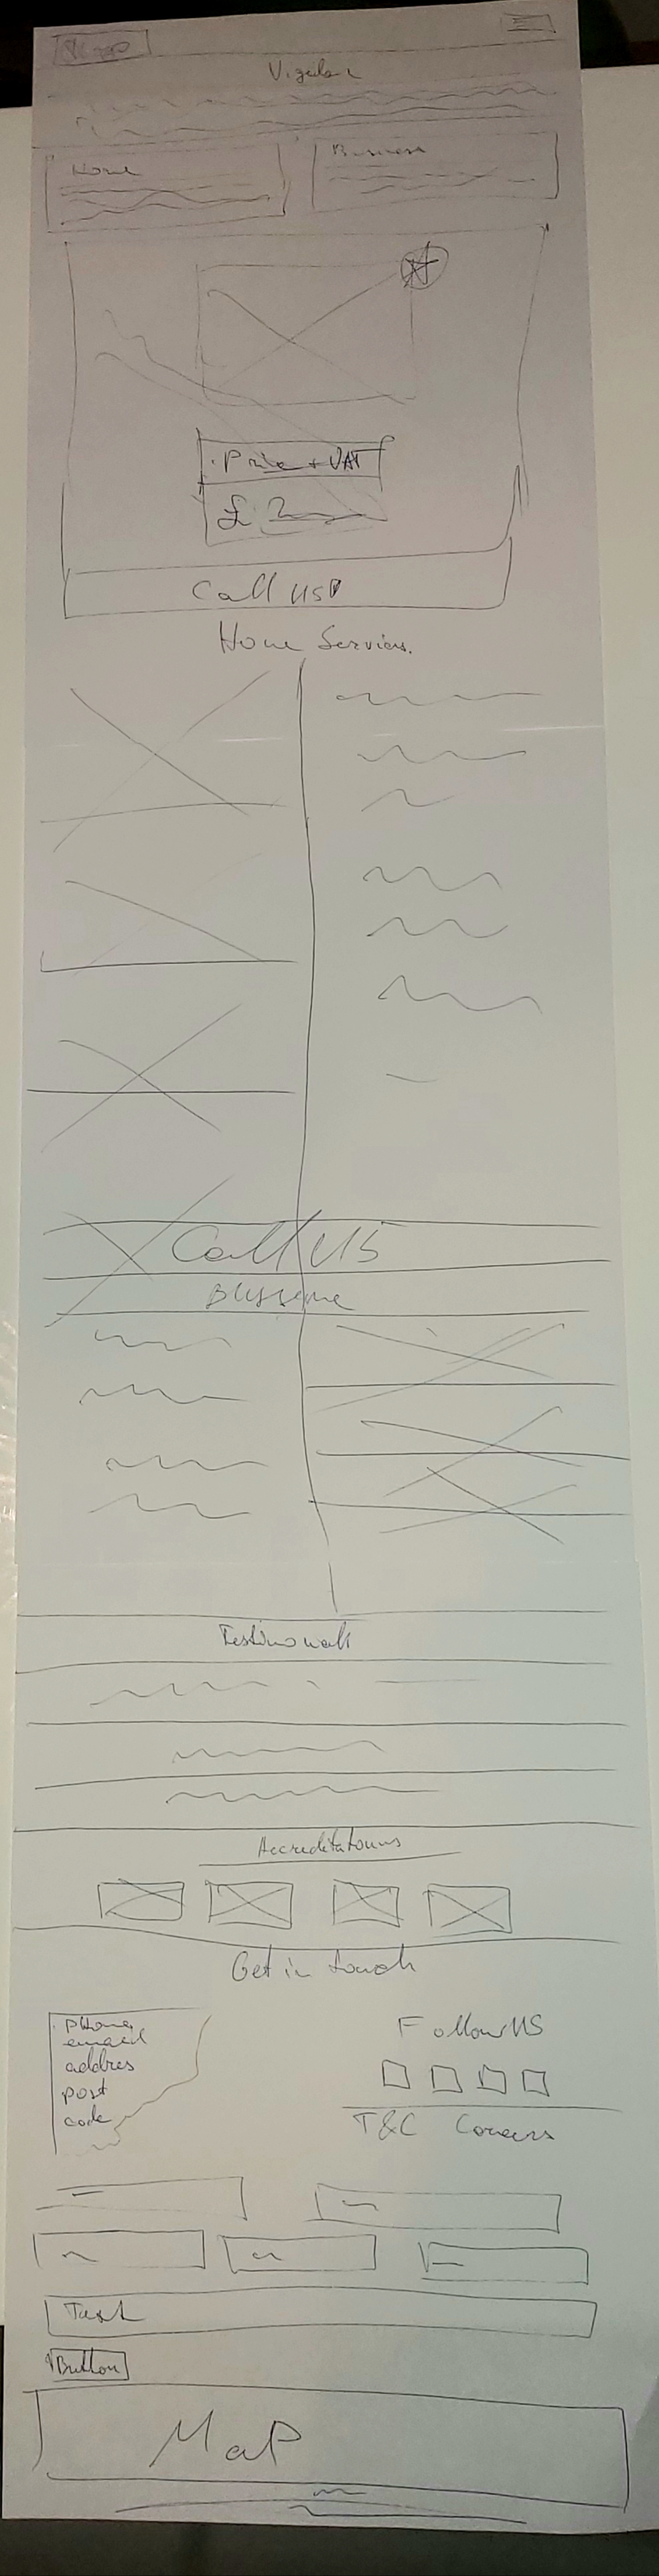 Home
Business
Price + VAT
£ 2
Call US
Home Services.
Call US
Testimonals
Accreditatouns
Get in touch
Phone
email
addres
post
code
Follow US
T&C Coneers
Text
Button
MaP